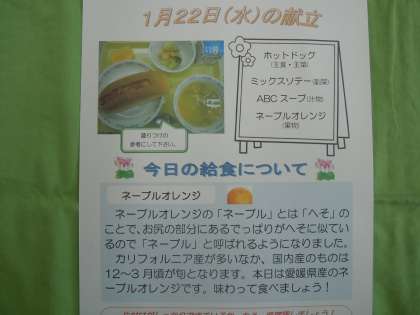 1月22日(水)の献立
ホットドッグ
(主食・主菜)
ミックスソテー(副菜)
ABCスープ(汁物)
ネーブルオレンジ
(果物)
盛りつけの
参考にして下さい。
今日の給食について
ネーブルオレンジ
ネーブルオレンジの「ネーブル」とは「へそ」の
ことで、お尻の部分にあるでっぱりがへそに似てい
るので「ネーブル」と呼ばれるようになりました。
カリフォルニア産が多いなか、国内産のものは
12～3月頃が旬となります。本日は愛媛県産のネ
ーブルオレンジです。味わって食べましょう！